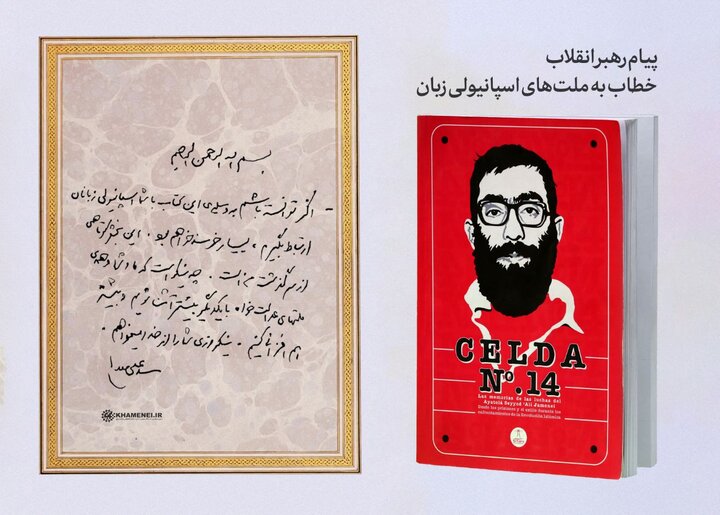 پیام رهبر انقلاب
خطاب به ملت‌های اسپانیولی زبان
بسم الله الرحمن الرحیم
اگر توانسته باشم به وسیله‌ی این کتاب با شما اسپانیولی زبانان
ارتباط بگیرم، بسیار خرسند خواهم بود. این بخش کوتاهی
از سرگذشت من است. چه نیکو است که ما و شما و همه‌ی
ملتهای عدالت‌خواه با یکدیگر بیشتر آشنا شویم و بیشتر
هم‌افزائی کنیم. نیکروزی شما را از خدا میخواهم.
سید علی خامنه‌ای
KHAMENEI.IR
CELDA
Nº.14
Las memorias de las luchas del
Ayatolá Seyyed ‘Alí Jamenei
Desde las prisiones y el exilio durante los
enfrentamientos de la Revolución Islámica